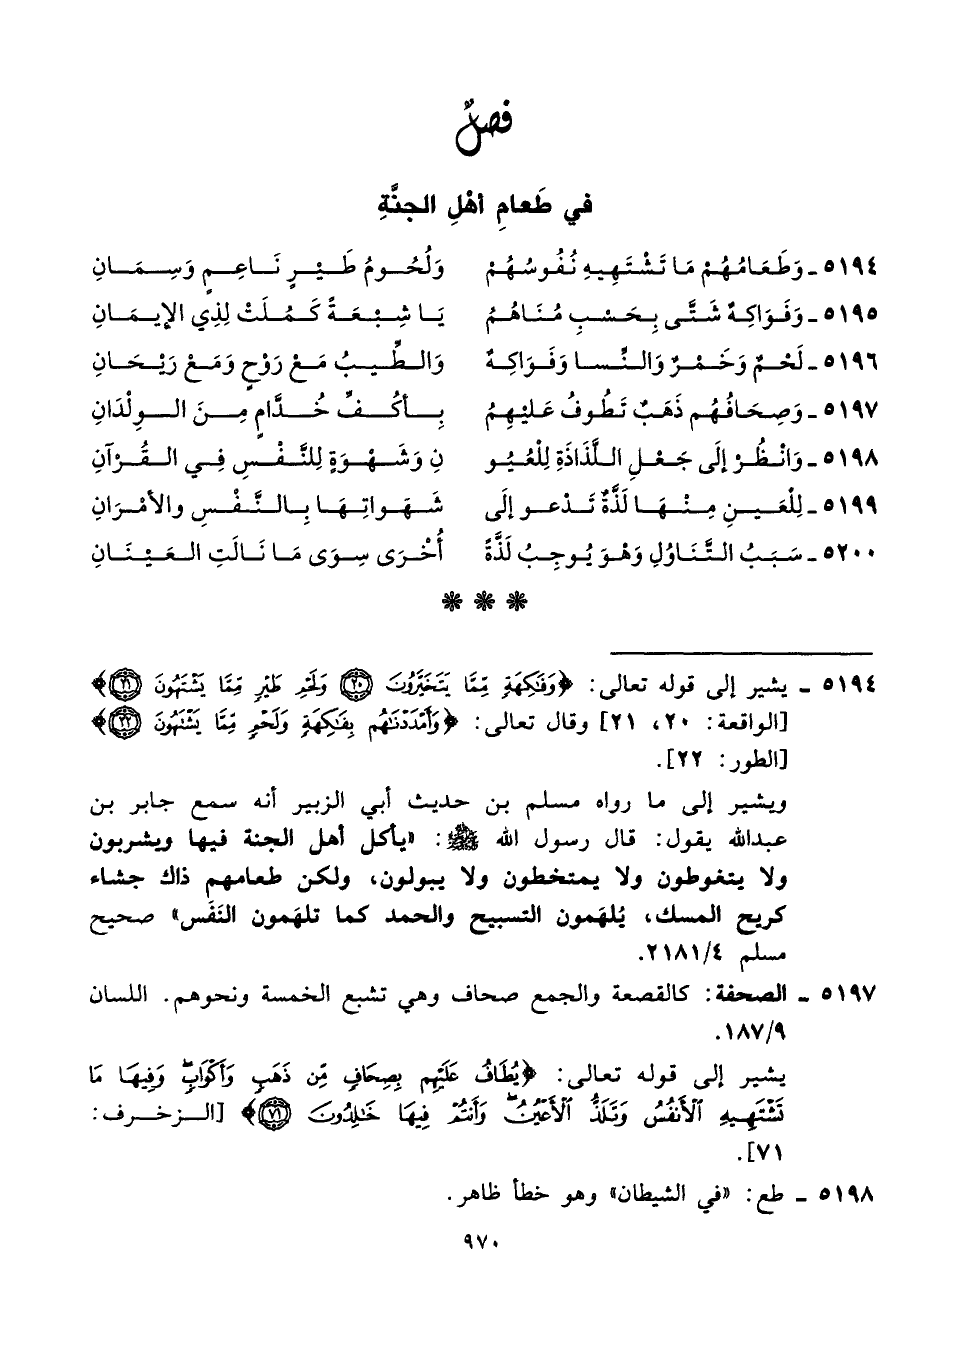 فصلٌ
في طَعامِ أهْلِ الجنَّةِ
٥١٩٤ - وَطَعَامُهُمْ مَا تَشْتَهِيهِ نُفُوسُهُمْ وَلُحُومُ طَيْرٍ نَاعِمٍ وَسِمَانِ
٥١٩٥ - وَفَوَاكِهٌ شَتَّى بِحَسْبِ مُنَاهُمُ يَا شِبْعَةً كَمُلَتْ لِذِي الإيمَانِ
٥١٩٦ - لَحْمٌ وَخَمْرٌ وَالنِّسا وَفَوَاكِهٌ وَالطِّيبُ مَعْ رَوْحٍ وَمَعْ رَيْحَانِ
٥١٩٧ - وَصِحَافُهُم ذَهَبٌ تَطُوفُ عَليْهِمُ بِأكُفِّ خُدَّامٍ مِنَ الوِلْدَانِ
٥١٩٨ - وَانْظُرْ إلَى جَعْلِ اللَّذَاذَةِ لِلْعُيُو نِ وَشَهْوَةٍ لِلنَّفْسِ فِي القُرْآنِ
٥١٩٩ - لِلْعَينِ مِنْهَا لَذَّةٌ تَدْعو إلَى شَهَواتِهَا بِالنَّفْسِ والأمْرَانِ
٥٢٠٠ - سَبَبُ التَّنَاوُلِ وَهْوَ يُوجِبُ لَذَّةً أُخْرَى سِوَى مَا نَالَتِ العَيْنَانِ
❋ ❋ ❋
٥١٩٤ - يشير إلى قوله تعالى: ﴿وَفَٰكِهَةٍ مِّمَّا يَتَخَيَّرُونَ ٢٠ وَلَحْمِ طَيْرٍ مِّمَّا يَشْتَهُونَ ٢١﴾
[الواقعة: ٢٠، ٢١] وقال تعالى: ﴿وَأَمْدَدْنَٰهُم بِفَٰكِهَةٍ وَلَحْمٍ مِّمَّا يَشْتَهُونَ ٢٢﴾
[الطور: ٢٢].
ويشير إلى ما رواه مسلم بن حديث أبي الزبير أنه سمع جابر بن
عبدالله يقول: قال رسول الله ﷺ: «يأكل أهل الجنة فيها ويشربون
ولا يتغوطون ولا يمتخطون ولا يبولون، ولكن طعامهم ذاك جشاء
كريح المسك، يُلهَمون التسبيح والحمد كما تلهَمون النَفَس» صحيح
مسلم ٢١٨١/٤.
٥١٩٧ - الصحفة: كالقصعة والجمع صحاف وهي تشبع الخمسة ونحوهم. اللسان
١٨٧/٩.
يشير إلى قوله تعالى: ﴿يُطَافُ عَلَيْهِم بِصِحَافٍ مِّن ذَهَبٍ وَأَكْوَابٍ ۖ وَفِيهَا مَا
تَشْتَهِيهِ ٱلْأَنفُسُ وَتَلَذُّ ٱلْأَعْيُنُ ۖ وَأَنتُمْ فِيهَا خَٰلِدُونَ ٧١﴾ [الزخرف:
٧١].
٥١٩٨ - طع: «في الشيطان» وهو خطأ ظاهر.
٩٧٠